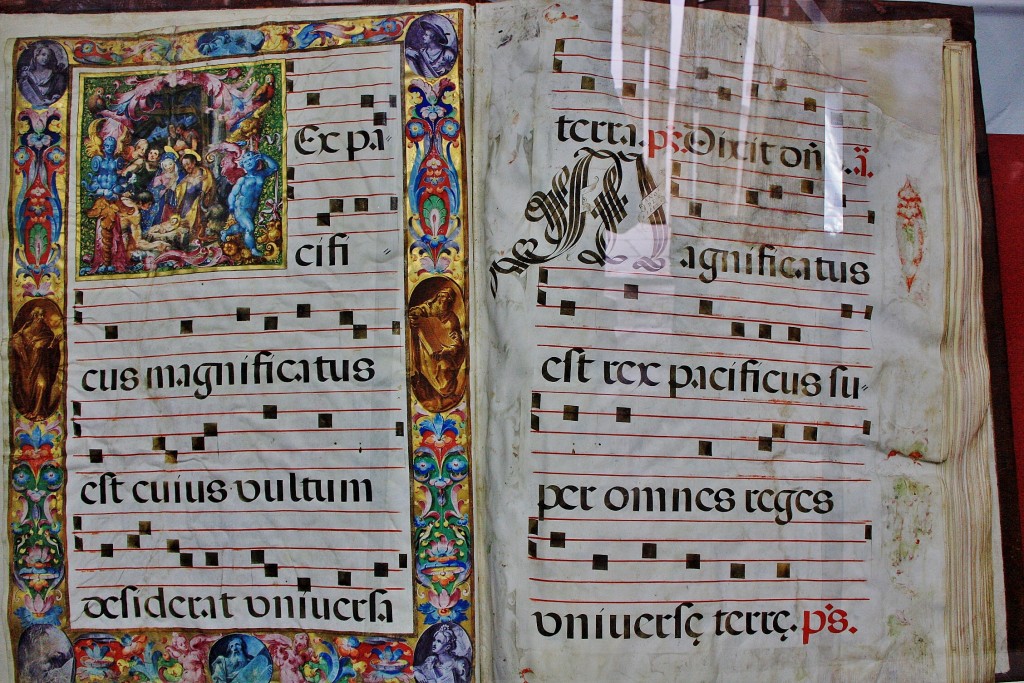 Ex pa-
cifi
cus magnificatus
est cuius vultum
desiderat vniuersa
terra. ps. Dixit dñ̃. ā.
Magnificatus
est rex pacificus su-
per omnes reges
vniuersę terrę. ps.